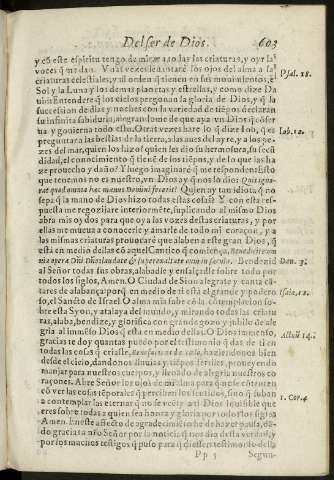 Del ser de Dios. 603
y cõ este espiritu tengo de mirar todas las criaturas, y oyr las
voces q̃ me dan. Vnas vezes leuantaré los ojos del alma a las Psal. 18.
criaturas celestiales, y al orden q̃ tienen en sus mouimientos, el
Sol y la Luna y los demas planetas y estrellas, y como dize Da
uid: Entenderé q̃ los cielos pregonan la gloria de Dios, y q̃ la
sucession de dias y noches con la variedad de tiẽpos declaran
su infinita sabiduria, alegrandome de que aya vn Dios q̃ cõser
ua y gouierna todo esto. Otras vezes haré lo q̃ dize Iob, q̃ es Iob. 12.
preguntar a las bestias de la tierra, a las aues del ayre, y a los pe-
zes del mar, quien los hizo? quien les dio su hermosura, su fecũ
didad, el conocimiento q̃ tiene de los tiẽpos, y de lo que las ha
ze prouecho y daño? Y luego imaginaré q̃ me responden: Esto
que tenemos no es nuestro, vn Dios ay q̃ nos lo dio: Quis igno-
rat quod omnia hæc manus Domini fecerit? Quien ay tan idiota q̃ no
sepa q̃ la mano de Dios hizo todas estas cosas? Y con esta res-
puesta me regozijare interiormẽte, suplicando al mismo Dios
abra mis oydos para que oya las vozes destas criaturas, y por
ellas me mueua a conocerle y amarle de todo mi coraçon, y a
las mismas criaturas prouocaré que alaben a este gran Dios, q̃
està en medio dellas cõ aquel Cantico q̃ comiença, Benedicite om
nia opera Dñi Dño laudate & superexaltate eum in sæcula. Bendezid Dan. 3.
al Señor todas sus obras, alabadle y ensalçadle sobre todo por
todos los siglos, Amen. O Ciudad de Sion alegrate y canta cã-
tares de alabança; porq̃ en medio de ti està el grande y podero Isaiæ. 12.
so, el Sancto de Israel. O alma mia sube cõ la cõtemplacion so-
bre esta Syon, y atalaya del mundo, y mirando a todas las criatu
ras, alaba, bendize, y glorifica con grande gozo y jubilo de ale
gria al immẽso Dios q̃ està en medio dellas. O Dios immenso,
gracias te doy quantas puedo por el testimonio q̃ das de ti en Actuũ 14.
todas las cosas q̃ criaste, benefaciens de cælo, haziendonos bien
desde el cielo, dandonos lluuias y tiẽpos fertiles, proueyendo
manjar para nuestros cuerpos, y llenando de alegria nuestros co
raçones. Abre Señor los ojos de mi alma para q̃ no se cõtentẽ
cõ ver las cosas tẽporales q̃ perciben los sentidos, sino q̃ suban 1. Cor. 4
a contemplar las eternas q̃ no se veẽ;
eres sobre todas a quien sea honra y gloria por todos los siglos
Amen. En este afecto de agradecimiẽto me he de exercitar, dã-
do gracias a nr̃o Señor por la noticia q̃ nos dio desta verdad, y
por los muchos testigos q̃ puso para q̃ diessen testimonio della
Pp 3 Segun-